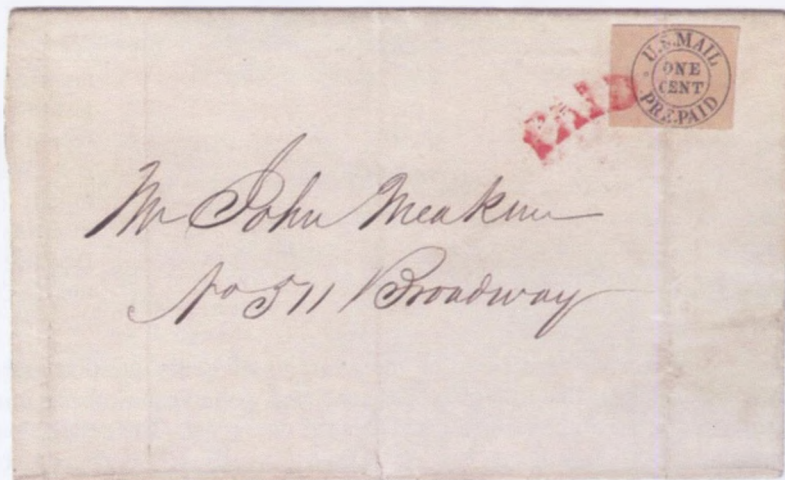 U.S.MAIL
ONE
CENT
PRE.PAID
PAID
Mr John Meakim
No 511 Broadway